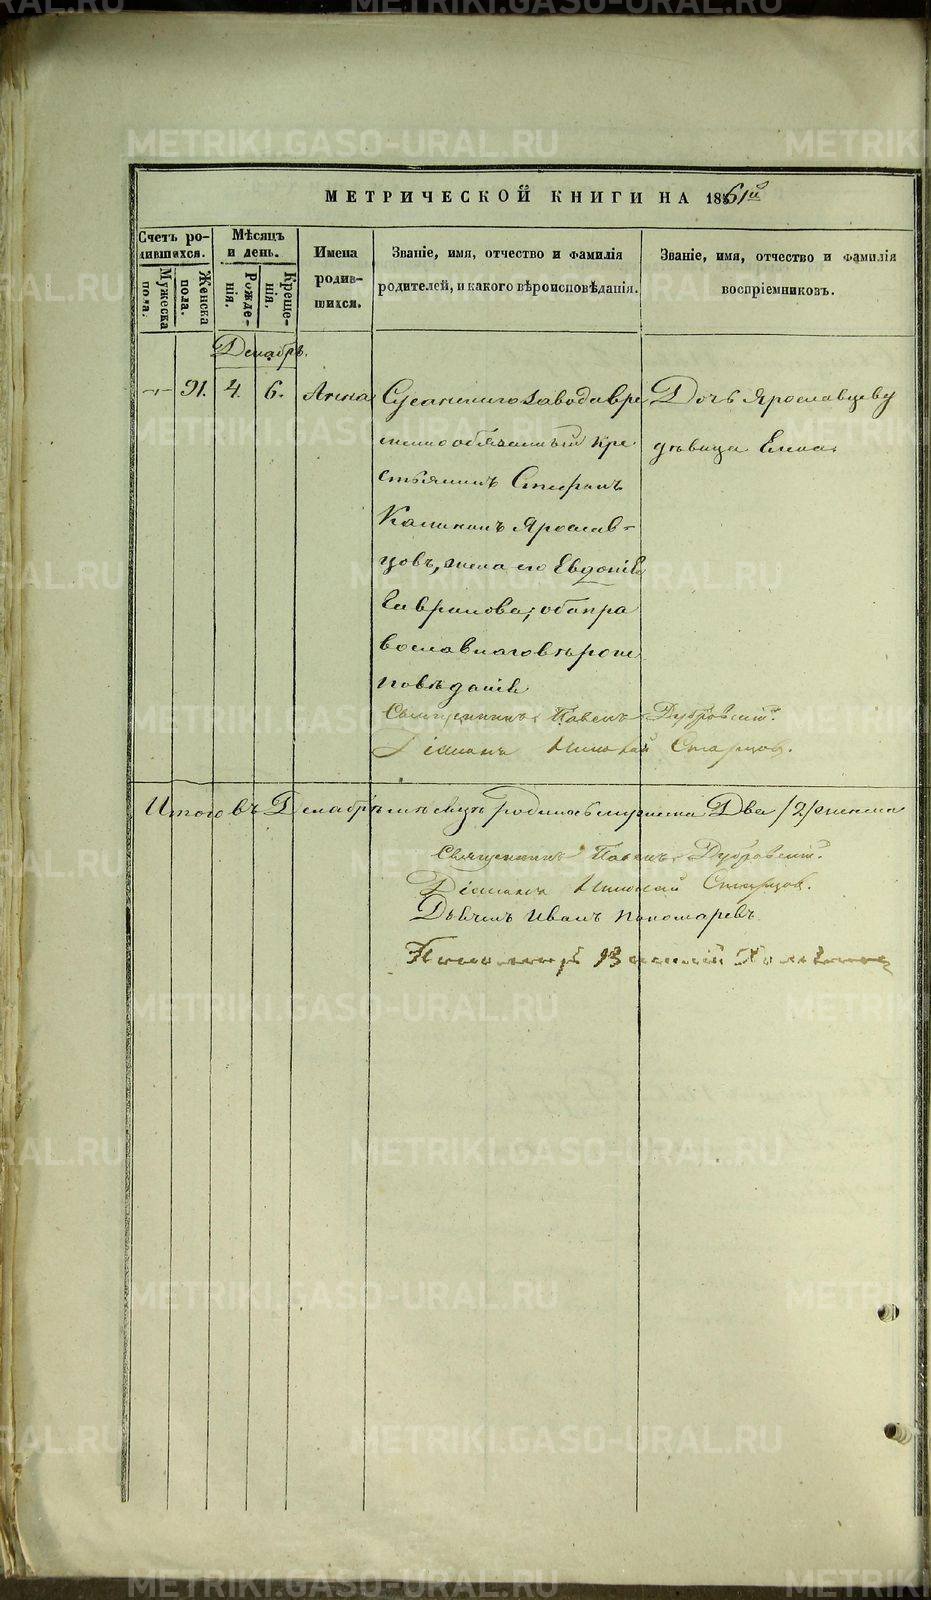 МЕТРИЧЕСКОЙ КНИГИ НА 1861й
Счетъ ро-
дившихся.
Мужеска
пола.
Женска
пола.
Мѣсяцъ
и день.
Рожде-
нія.
Креще-
нія.
Имена
родив-
шихся.
Званіе, имя, отчество и фамилія
родителей, и какого вѣроисповѣданія.
Званіе, имя, отчество и фамилія
воспріемниковъ.
Декабрь.
91. 4. 6. Анна
Сусанскаго завода вре
менно обязанный кре
стьянинъ Стефанъ
Калинин Ярослав-
цовъ, жена его Евдокія
Гаврилова; оба пра
вославнаго вѣроис
повѣданія
Дочь Ярославцеву
дѣвица Елена.
Священникъ Павелъ Дубровскій.
Діаконъ Николай Старцов.
Итого въ Декабрѣ мѣсяцѣ родилось мужеска Два /2/ женска
Священникъ Павелъ Дубровскій.
Діаконъ Николай Старцов.
Дьячекъ Иванъ Пономаревъ
Пономарь Василій
METRIKI.GASO-URAL.RU